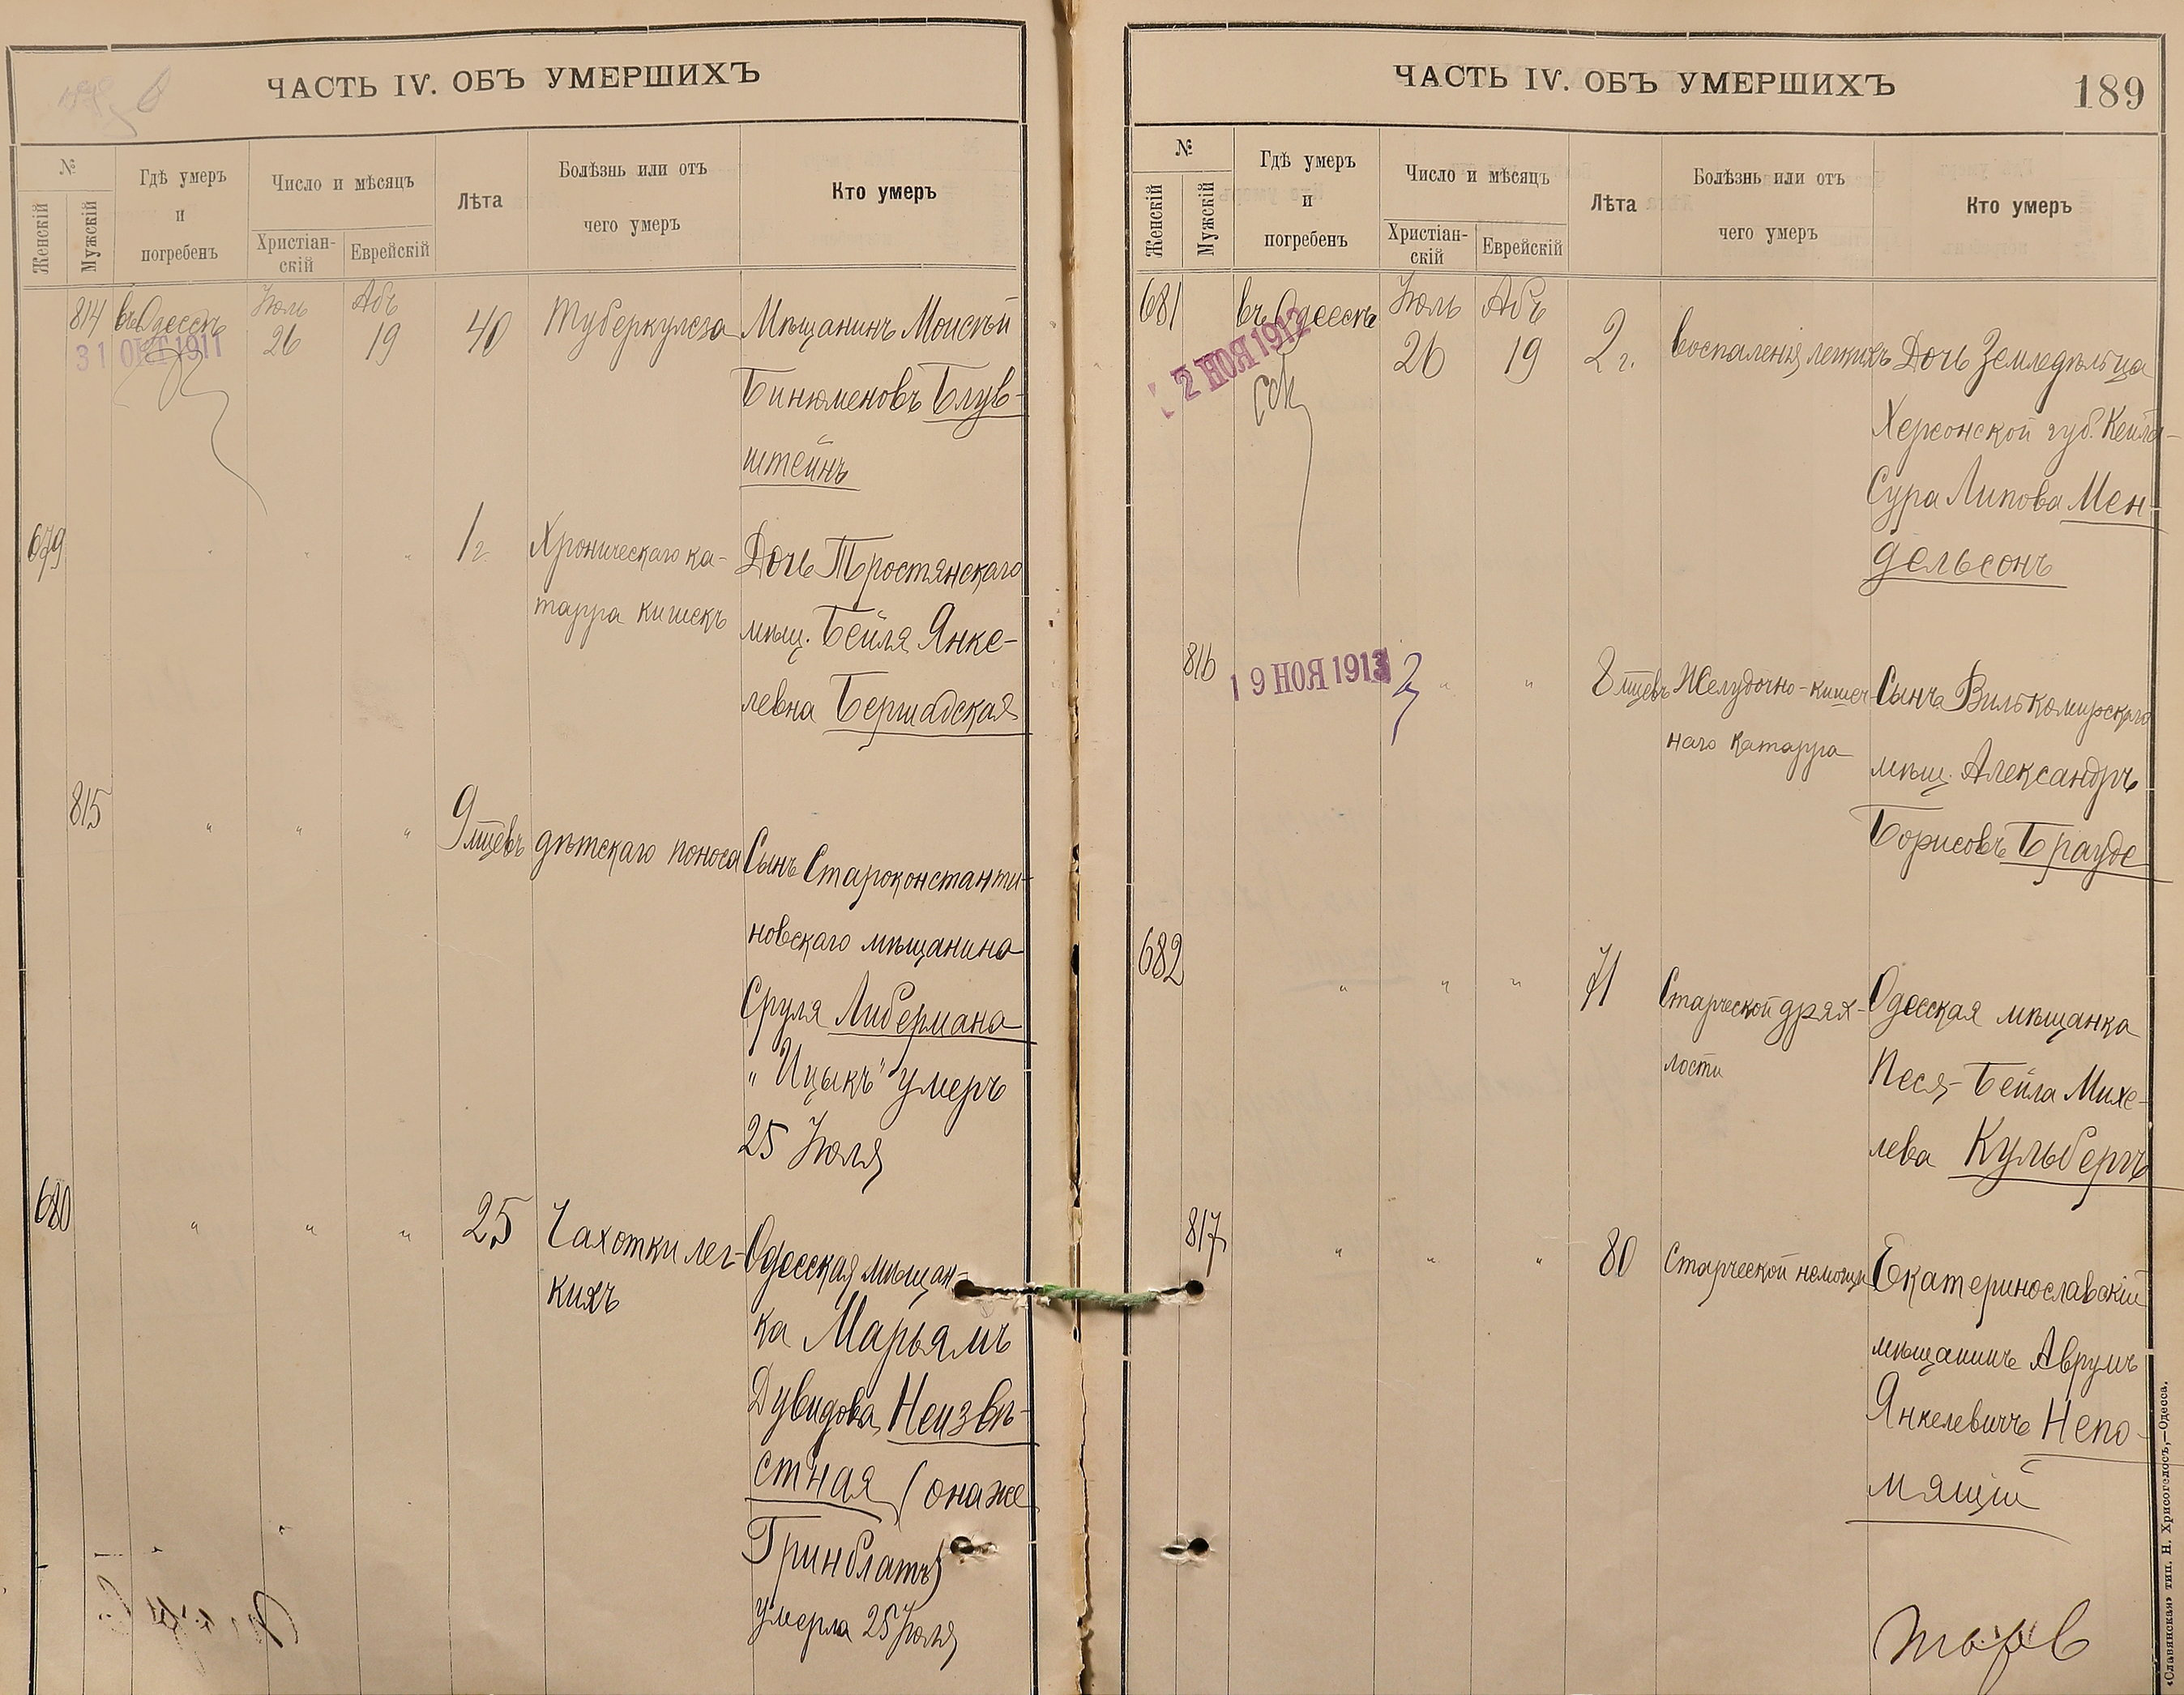 ЧАСТЬ IV. ОБЪ УМЕРШИХЪ
№
Женскій
Мужскій
Гдѣ умеръ
и
погребенъ
Число и мѣсяцъ
Христіан-
скій
Еврейскій
Лѣта
Болѣзнь или отъ
чего умеръ
Кто умеръ
814 въ Одессѣ Іюль 26 Абъ 19 40 Туберкулеза Мѣщанинъ Моисѣй
31 ОКТ 1911
Бинюменовъ Блув-
штейнъ
679 " " " 1 г. Хроническаго ка- Дочь Тростянскаго
тарра кишекъ мѣщ. Бейля Янке-
левна Бершадская
815 " " " 9 мцевъ дѣтскаго поноса Сынъ Староконстанти-
новскаго мѣщанина
Сруля Либермана
"Ицыкъ" умеръ
25 Іюля
680 " " " 25 Чахотки лег- Одесская мѣщан-
кихъ ка Марьямъ
Дувидова Неизвѣ-
стная (она же
Гринблатъ)
умерла 25 Іюля
ЧАСТЬ IV. ОБЪ УМЕРШИХЪ
189
№
Женскій
Мужскій
Гдѣ умеръ
и
погребенъ
Число и мѣсяцъ
Христіан-
скій
Еврейскій
Лѣта
Болѣзнь или отъ
чего умеръ
Кто умеръ
681 въ Одессѣ Іюль 26 Абъ 19 2 г. Воспаленія легкихъ Дочь Земледѣльца
2 НОЯ 1912
Херсонской губ. Кейла-
Сура Липова Мен-
дельсонъ
816 19 НОЯ 1913 " " 8 мцевъ Желудочно-кишеч- Сынъ Вилькомирскаго
наго катарра мѣщ. Александръ
Борисовъ Брауде
682 " " " 71 Старческой дрях- Одесская мѣщанка
лости Песя-Бейла Михе-
лева Кульбергъ
817 " " " 80 Старческой немощи Екатеринославскій
мѣщанинъ Аврумъ
Янкелевичъ Непо-
мящій
«Славянская» тип. Н. Хрисогелосъ,—Одесса.